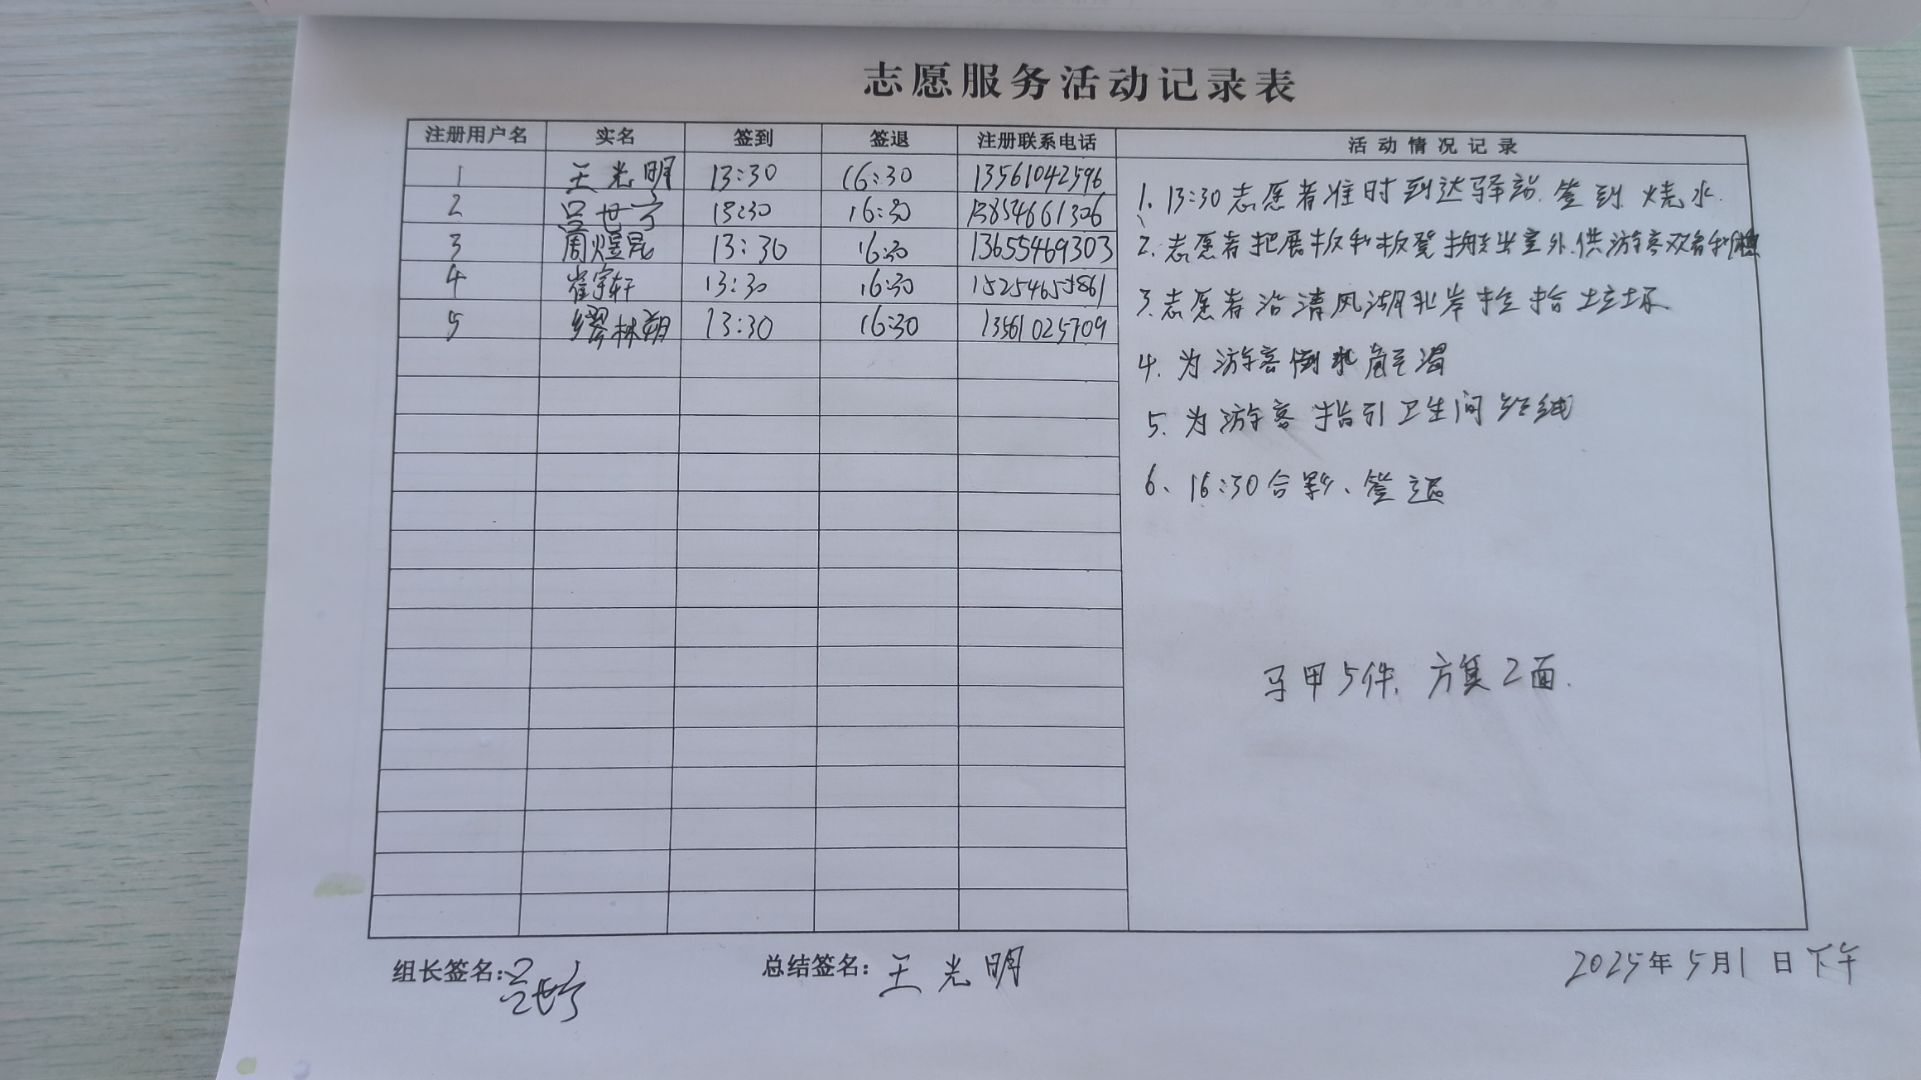 志愿服务活动记录表
注册用户名 实名 签到 签退 注册联系电话 活动情况记录
1 王光明 13:30 16:30 13561042596
2 吕世宁 13:30 16:30 13854661306
3 周煜昆 13:30 16:30 13655469303
4 崔宇轩 13:30 16:30
5 缪林朔 13:30 16:30 13561025709
1. 13:30志愿者准时到达驿站.签到 烧水.
2. 志愿者把展板和板凳搬出室外.供游客观看和
3. 志愿者沿清风湖北岸捡拾垃圾
4. 为游客倒水 解渴
5. 为游客指引卫生间
6、16:30合影、签退
马甲5件. 方集2面.
组长签名:吕世宁 总结签名:王光明 2025年5月1日下午